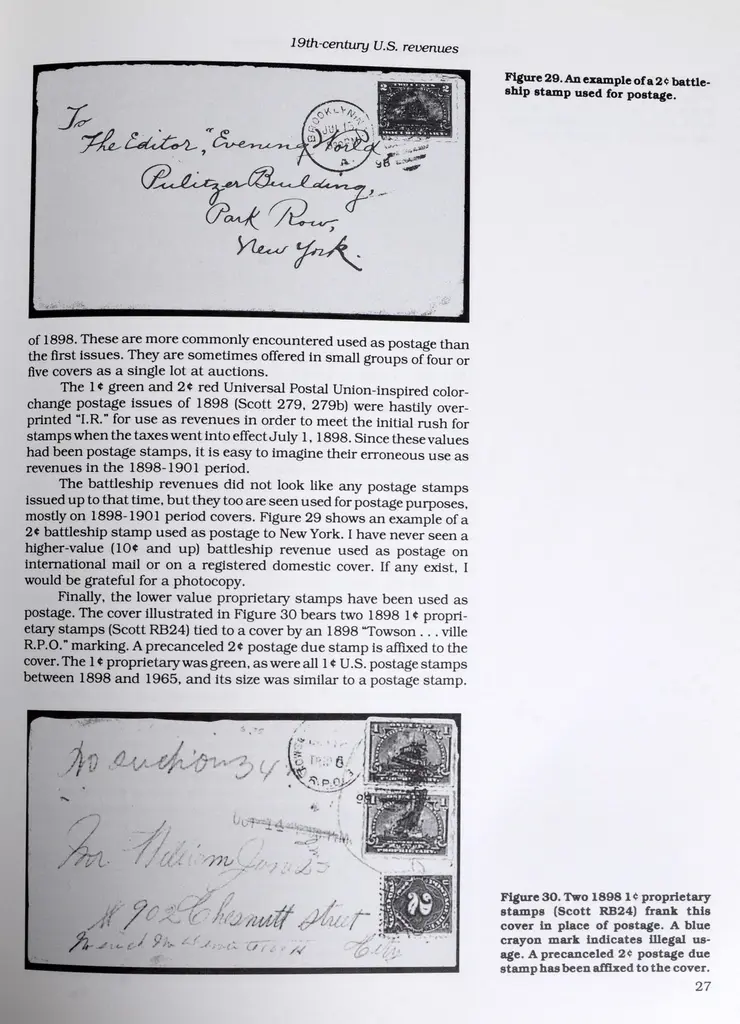 19th-century U.S. revenues
Figure 29. An example of a 2¢ battle-
ship stamp used for postage.
To
The Editor, "Evening World
Pulitzer Building,
Park Row,
New York.
BROOKLYN, N.Y.
JUL
98
2
2
of 1898. These are more commonly encountered used as postage than
the first issues. They are sometimes offered in small groups of four or
five covers as a single lot at auctions.
The 1¢ green and 2¢ red Universal Postal Union-inspired color-
change postage issues of 1898 (Scott 279, 279b) were hastily over-
printed "I.R." for use as revenues in order to meet the initial rush for
stamps when the taxes went into effect July 1, 1898. Since these values
had been postage stamps, it is easy to imagine their erroneous use as
revenues in the 1898-1901 period.
The battleship revenues did not look like any postage stamps
issued up to that time, but they too are seen used for postage purposes,
mostly on 1898-1901 period covers. Figure 29 shows an example of a
2¢ battleship stamp used as postage to New York. I have never seen a
higher-value (10¢ and up) battleship revenue used as postage on
international mail or on a registered domestic cover. If any exist, I
would be grateful for a photocopy.
Finally, the lower value proprietary stamps have been used as
postage. The cover illustrated in Figure 30 bears two 1898 1¢ propri-
etary stamps (Scott RB24) tied to a cover by an 1898 "Towson . . . ville
R.P.O." marking. A precanceled 2¢ postage due stamp is affixed to the
cover. The 1¢ proprietary was green, as were all 1¢ U.S. postage stamps
between 1898 and 1965, and its size was similar to a postage stamp.
No such on 34
R.P.O.
Mr William Jones
# 902 Chesnutt street
City
PROPRIETARY
2
Figure 30. Two 1898 1¢ proprietary
stamps (Scott RB24) frank this
cover in place of postage. A blue
crayon mark indicates illegal us-
age. A precanceled 2¢ postage due
stamp has been affixed to the cover.
27